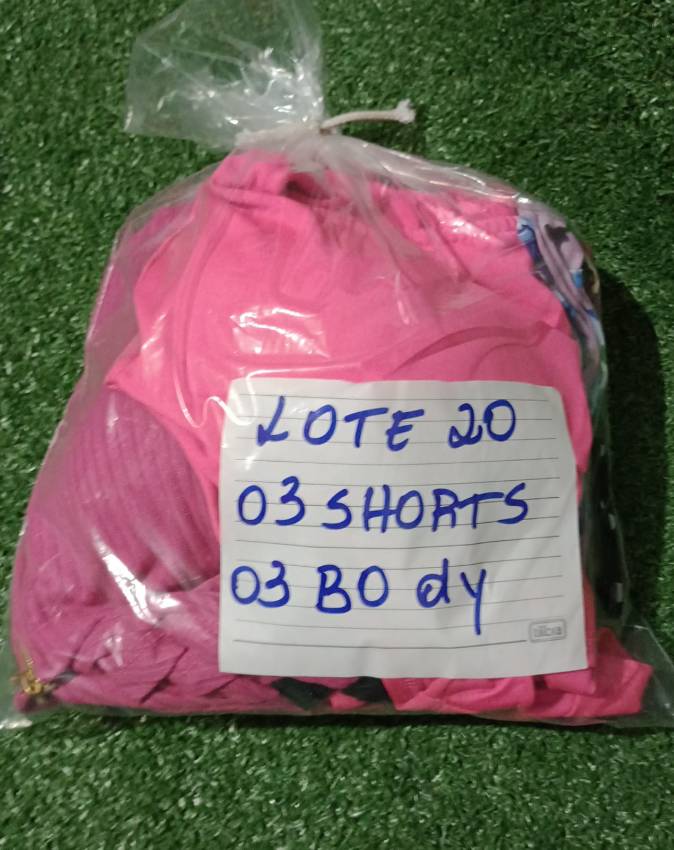 LOTE 20
03 SHORTS
03 BO dy
tilibra